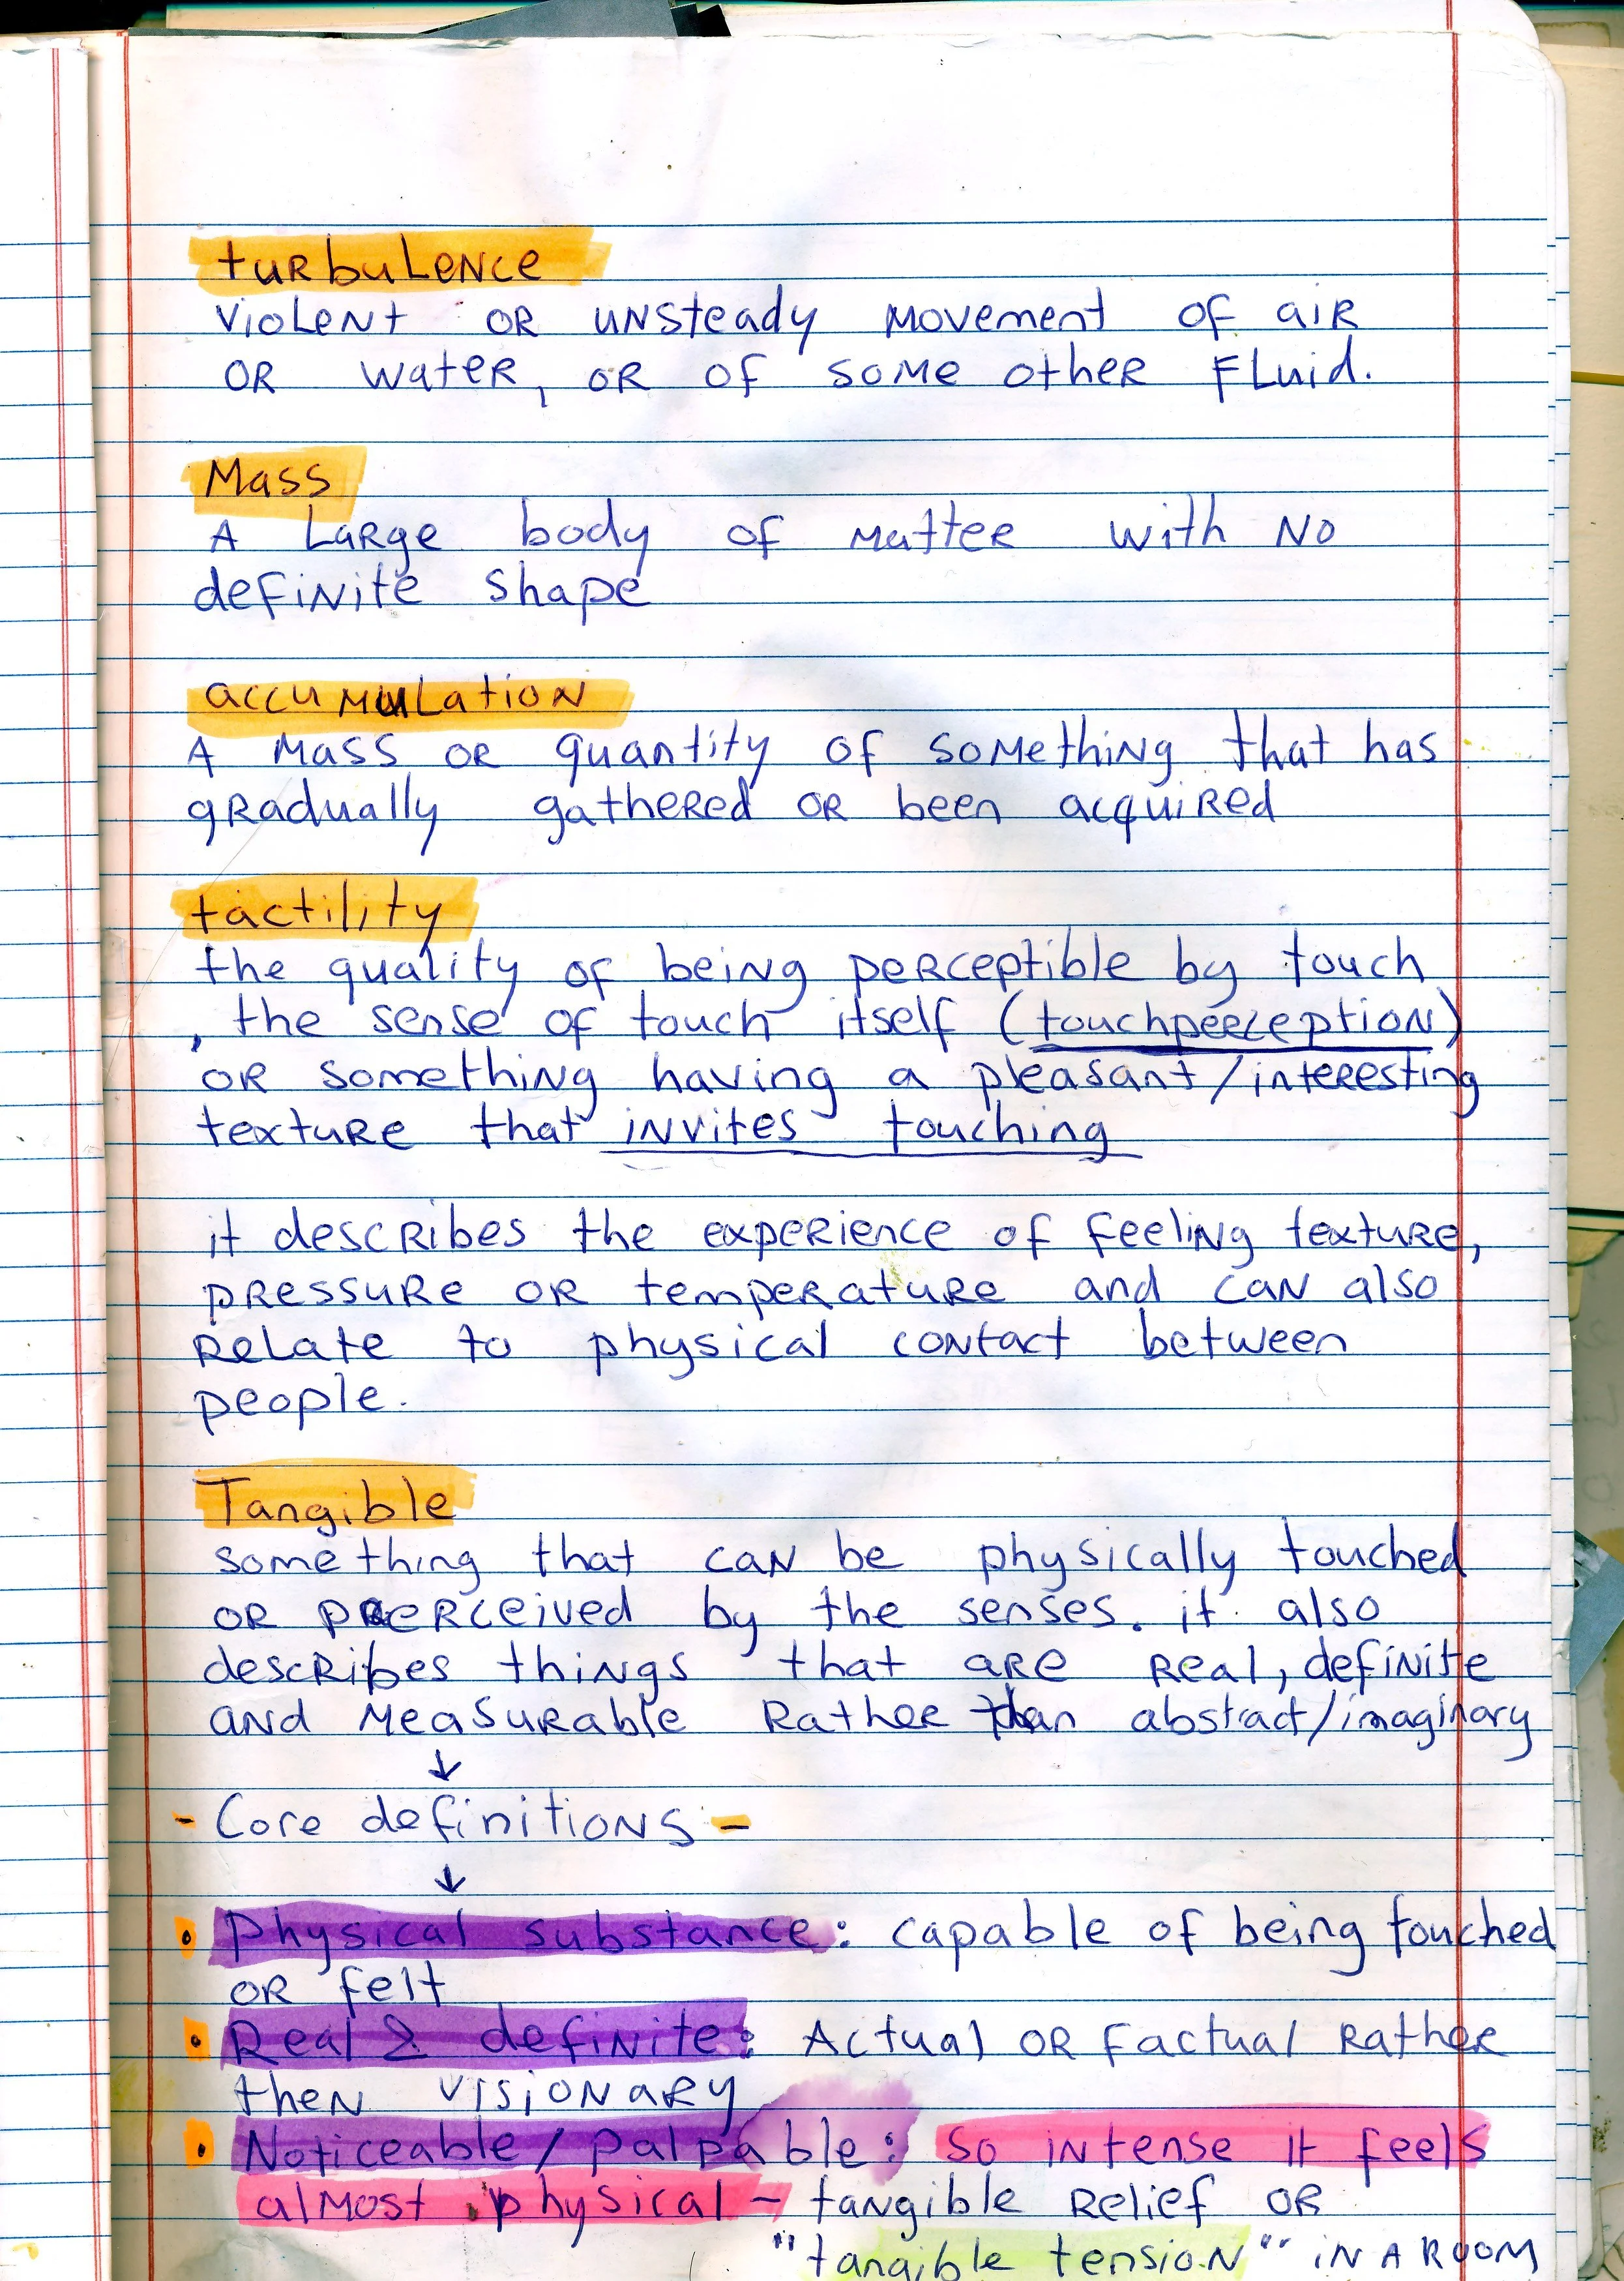 turbulence
violent or unsteady movement of air
or water, or of some other fluid.
Mass
A large body of matter with no
definite shape
accumulation
A mass or quantity of something that has
gradually gathered or been acquired
tactility
the quality of being perceptible by touch
, the sense of touch itself (touchperception)
or something having a pleasant/interesting
texture that invites touching
it describes the experience of feeling texture,
pressure or temperature and can also
relate to physical contact between
people.
Tangible
something that can be physically touched
or perceived by the senses. it also
describes things that are real, definite
and measurable rather than abstract/imaginary
↓
- Core definitions -
↓
• Physical substance: capable of being touched
or felt
• Real & definite: Actual or factual rather
then visionary
• Noticeable/palpable: so intense it feels
almost physical - tangible relief or
"tangible tension" in a room